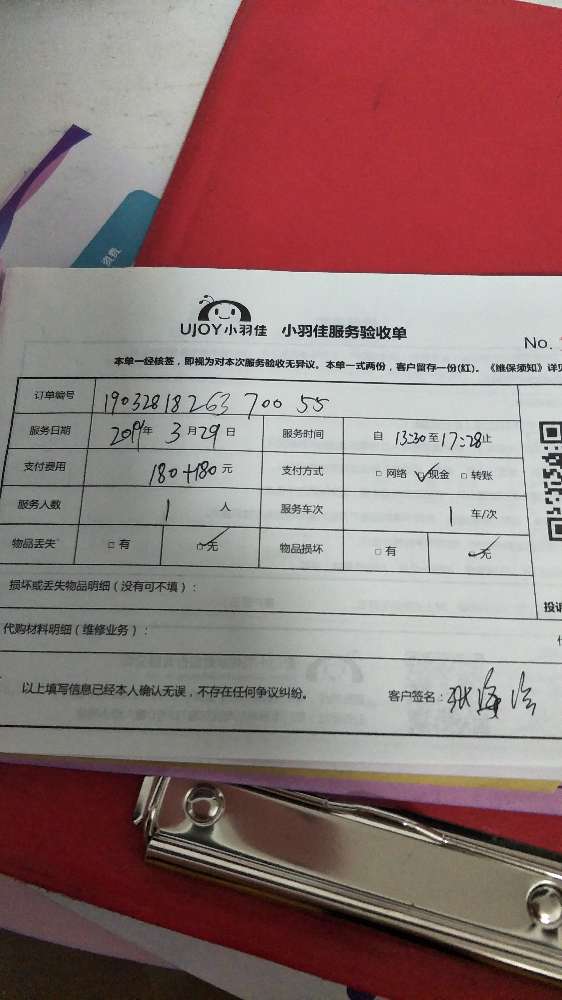 资费
UJOY小羽佳 小羽佳服务验收单
No.
本单一经核签，即视为对本次服务验收无异议。本单一式两份，客户留存一份(红)。《维保须知》详见
订单编号 190328182637 00 55
服务日期 2019年 3月29日 服务时间 自 13:30至17:28止
支付费用 180+180元 支付方式 □网络 □现金 □转账
服务人数 1 人 服务车次 1 车/次
物品丢失 □有 □无 物品损坏 □有 □无
损坏或丢失物品明细（没有可不填）：
投诉
代购材料明细（维修业务）：
以上填写信息已经本人确认无误，不存在任何争议纠纷。 客户签名：张海